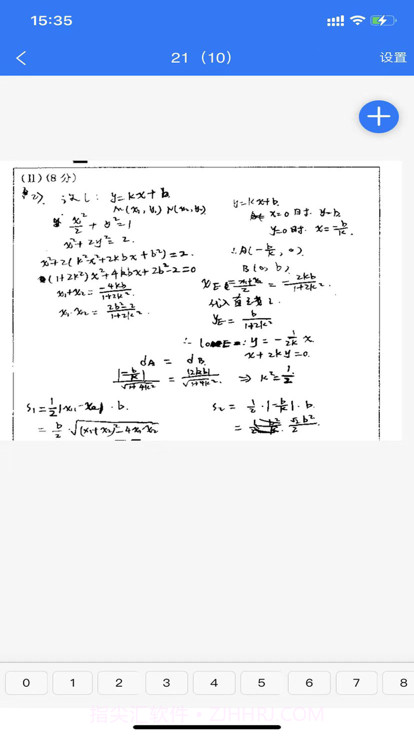 15:35
21 (10)
设置
(II)(8分)
(2). 设 l: y=kx+b
M(x₁, y₁) N(x₂, y₂)
x²/2 + y² = 1
x²+2y²=2.
x²+2(k²x²+2kbx+b²)=2.
(1+2k²)x²+4kbx+2b²-2=0
x₁+x₂ = -4kb/1+2k².
x₁·x₂ = 2b²-2/1+2k²
y=kx+b.
x=0时. y=b.
y=0时. x=-b/k.
∴A(-b/k, 0)
B(0, b)
= x₁+x₂/2 = -2kb/1+2k².
代入直线 l.
y_E = b/1+2k²
y = -1/2k x
x+2ky=0.
d_A = d_B
|-b/k|/√1+4k² = |2kb|/√1+4k² ⇒ k²=1/2
S₁=1/2|x₁-x₂|·b.
= b/2·√(x₁+x₂)²-4x₁x₂
S₂ = 1/2·|-b/k|·b
= √2b²/2
0 1 2 3 4 5 6 7 8
指尖汇软件·ZJHHRJ.COM